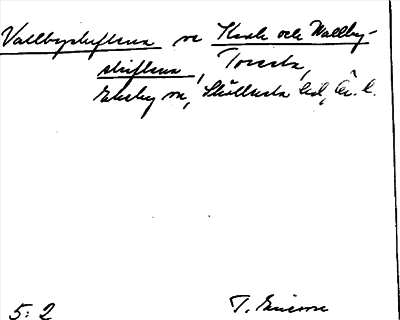 Vallbyskiftena se Kank och Wallby-
skiftena, Toresta,
Ekeby sn, Sköllersta hd, Ör. l.
5:2 T. Ericsson